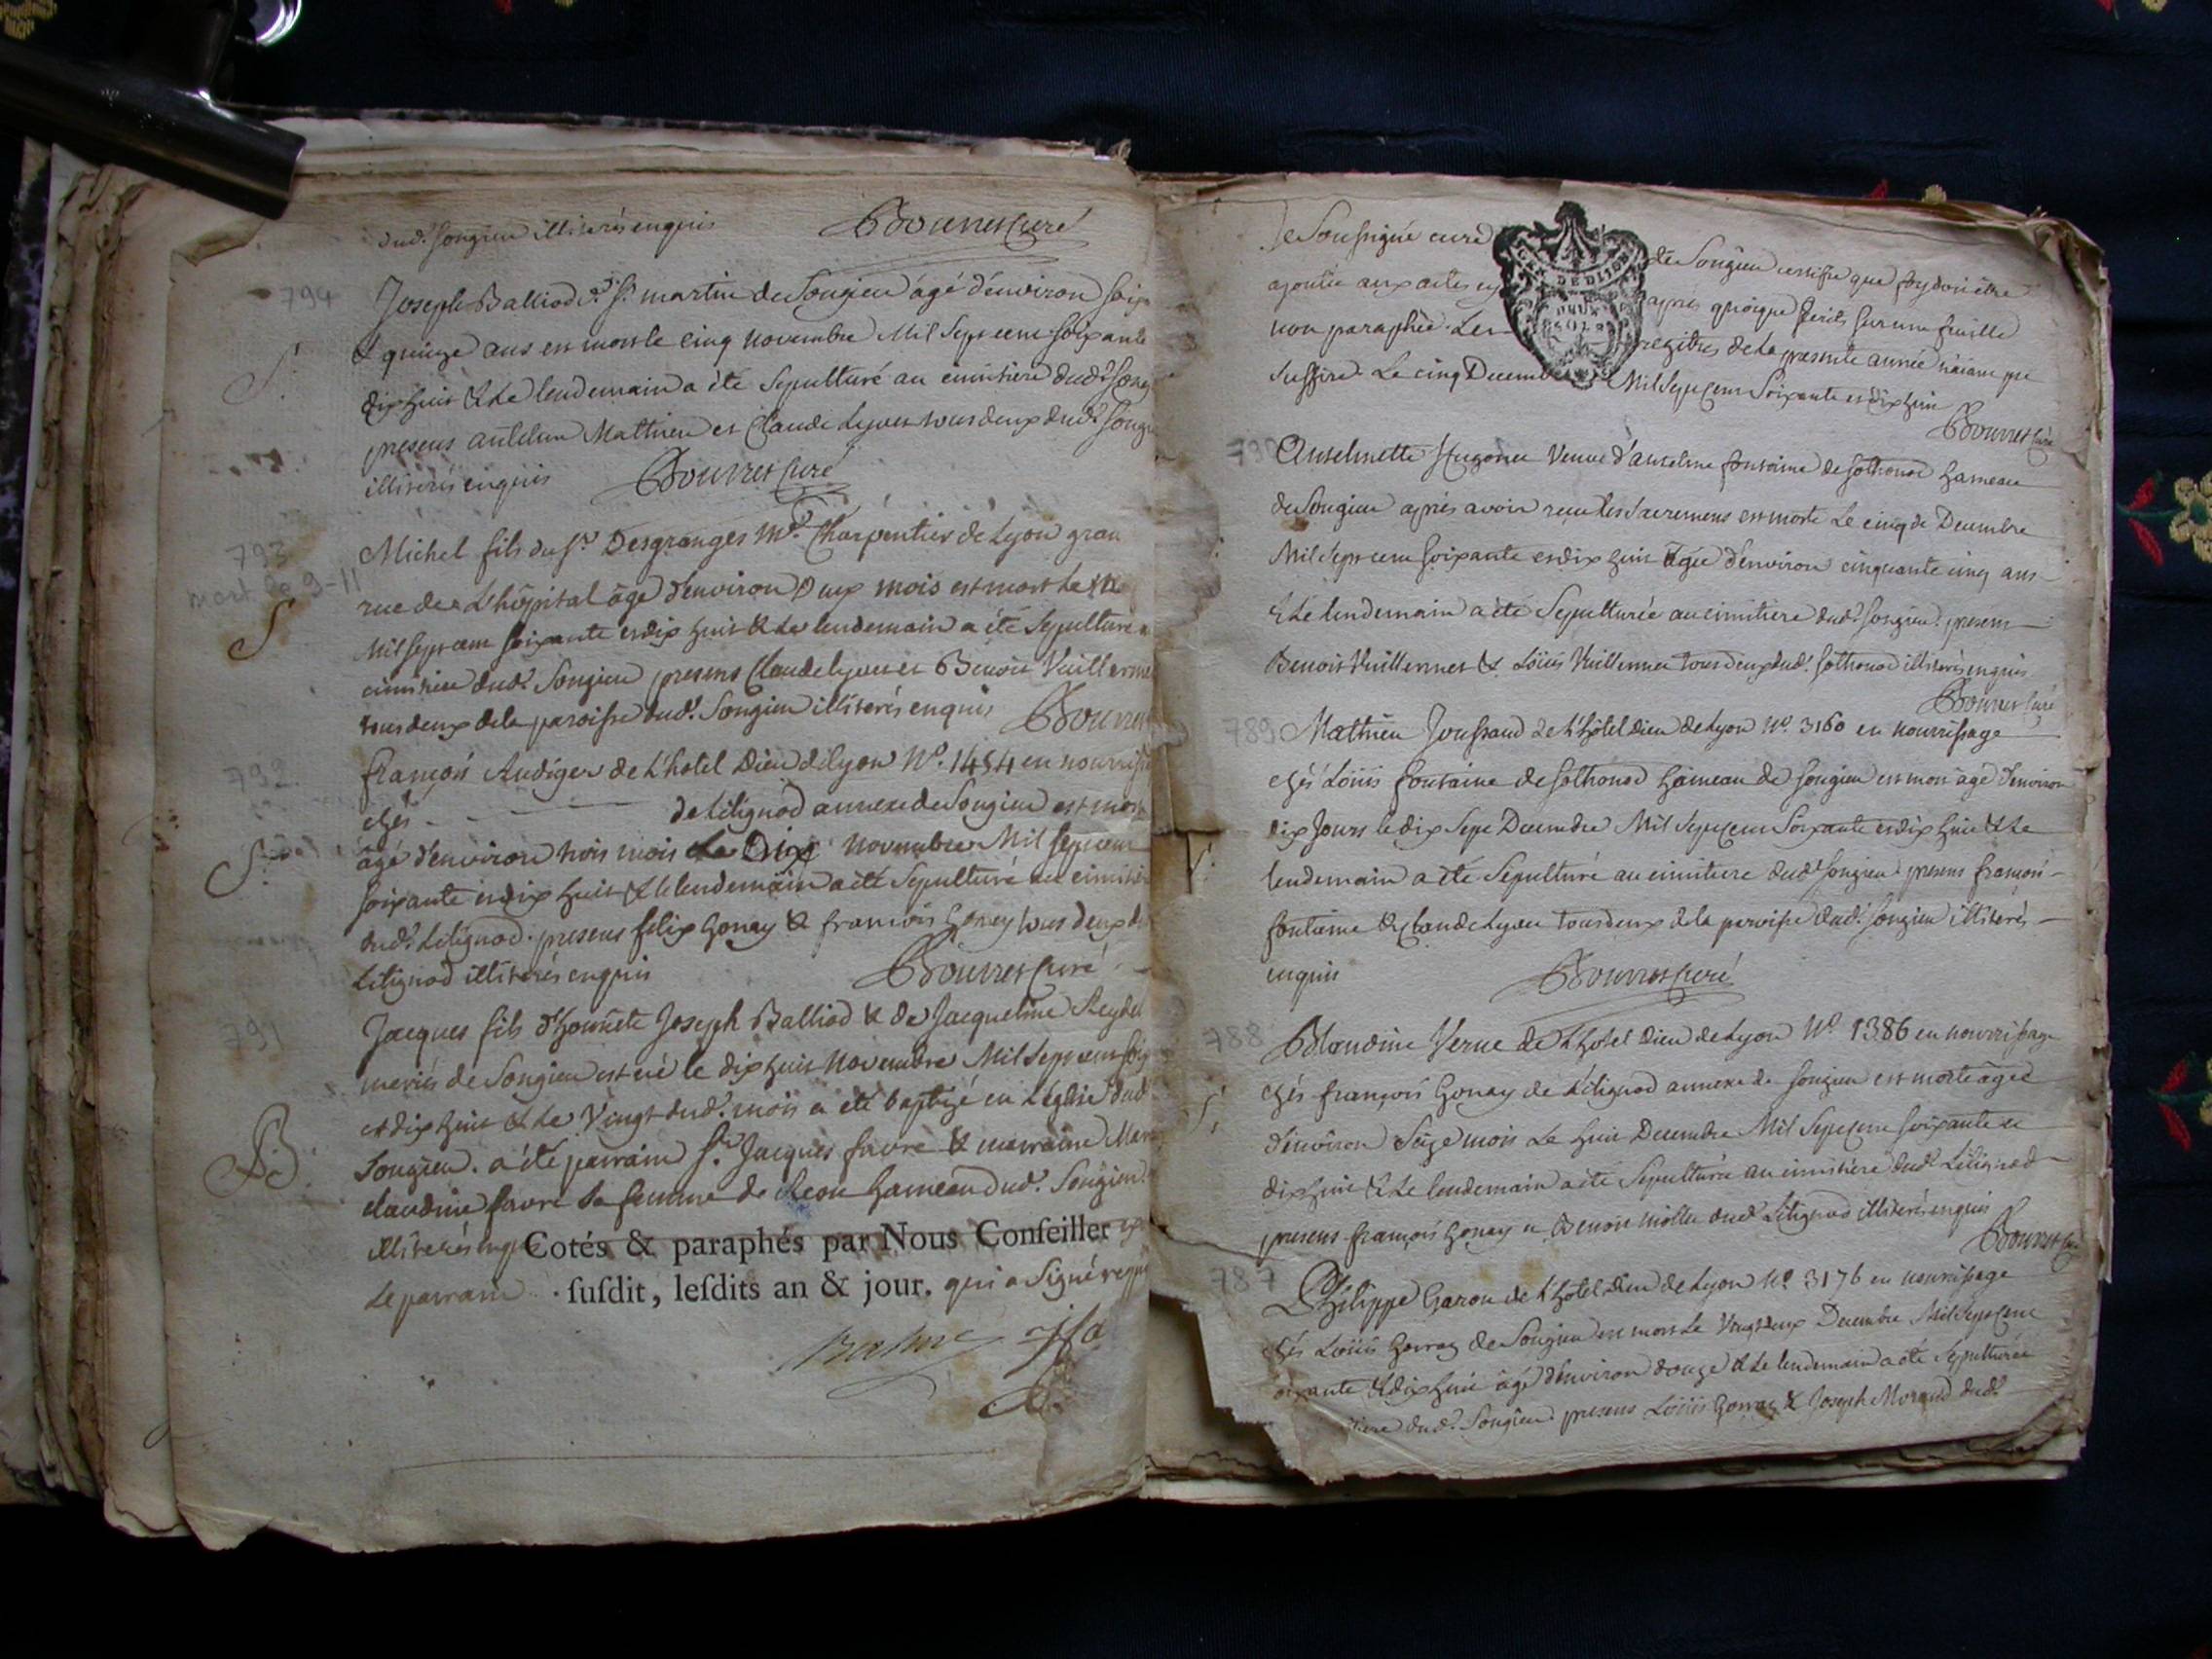 dud. Songieu illiterés enquis Bouvret Curé
794
Joseph Balliod de St. martin de Songieu agé d'environ soix
& quinze ans est mort le cinq novembre Mil Sept cent soixante
S.
dix huit & le lendemain a été Sepulturé au cimitiere dud. Song
presens antelme Mathieu et Claude Lyvet tous deux dud. Songi
illiterés enquis Bouvret Curé
793
mort le 9-11
Michel fils du Sr. Desgranges Me. Charpentier de Lyon gran
rue de L'hôpital âgé d'environ Deux mois est mort le
S
Mil sept cent soixante et dix huit & le lendemain a été Sepulturé
cimitiere dud. Songieu presens Claude Lyvet et Benoit Vuillerme
tous deux de la paroisse dud. Songieu illiterés enquis Bouvret
792
françois Audiger de L'hotel Dieu de Lyon No. 1454 en nourriss
chés - - - de Lilignod annexe de Songieu est mort
âgé d'environ trois mois le Dix novembre Mil Sept cent
S.
soixante et dix huit & le lendemain a été Sepulturé au cimitie
dud. Lilignod. presens felix Gonay & françois Gonay tous deux d
Lilignod illiterés enquis Bouvret Curé
791
Jacques fils d'honnete Joseph Balliod & de Jacqueline Reydel
mariés de Songieu est né le dix huit Novembre Mil Sept cent soix
et dix huit & le Vingt dud. mois a été baptizé en L'église dud
B.
Songieu. a été parrain Sr. Jacques favre & marraine Mar
claudine favre sa femme de hameau dud. Songieu
illiterés enq Cotés & paraphés par Nous Conseiller
Le parrain. susdit, lesdits an & jour. qui a Signé requi
Je Soussigné curé de Songieu certifie que
ajoutée aux actes cy apres quoique Ecrits sur une feuille
non paraphée. Les registres de la presente année n'aiant pu
Suffire. Le cinq Decembre Mil Sept Cent Soixante et dix huit
Bouvret Curé
790
Anselmette Hugonet Veuve d'anselme fontaine de Sothonod hameau
de Songieu après avoir recu les Sacremens est morte Le cinq de Decembre
Mil Sept cent soixante et dix huit âgée d'environ cinquante cinq ans
& le lendemain a été Sepulturée au cimitiere dud. Songieu. presens
Benoit Vuillermet & Loüis Vuillermet tous deux dud. Sothonod illiterés enquis
Bouvret Curé
789
Mathieu Joussaud de L'hôtel Dieu de Lyon No. 3160 en nourrissage
chés Loüis fontaine de Sothonod hameau de Songieu est mort âgé d'environ
dix Jours le dix Sept Decembre Mil Sept Cent Soixante et dix huit & le
S.
lendemain a été Sepulturé au cimitiere dud. Songieu. presens françois
fontaine & Claude Lyvet tous deux de la paroisse dud. Songieu illiterés
enquis Bouvret Curé
788
Blandine Verne de L'hotel Dieu de Lyon No. 1386 en nourrissage
chés françois Gonay de Lilignod annexe de Songieu est morte âgée
S.
d'environ Seize mois Le huit Decembre Mil Sept Cent soixante et
dix huit & le lendemain a été Sepulturée au cimitiere dud. Lilignod
presens françois Gonay et Benoit mollet dud. Lilignod illiterés enquis
Bouvret Curé
787
Philippe Garon de L'hotel Dieu de Lyon No. 3176 en nourrissage
chés Loüis Gorraz de Songieu est mort Le Vingt deux Decembre Mil Sept Cent
oixante & dix huit âgé d'environ douze & le lendemain a été Sepulturée
tiere dud. Songieu presens Loüis Gorraz & Joseph Morand dud.